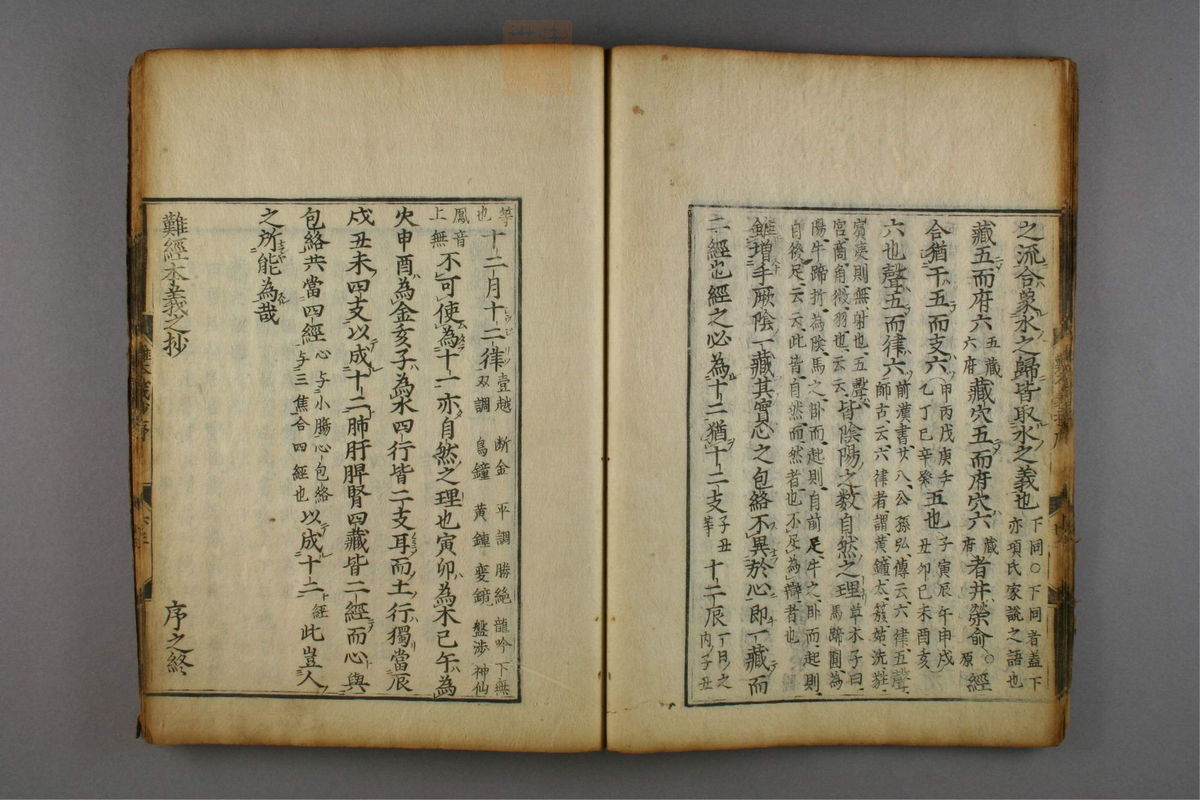 之流合衆水之歸皆取水之義也 下同〇下同者蓋下
亦項氏家說之語也
藏五而府六 五藏 六府 藏穴五而府穴六 藏府 者井滎俞〇原經
合猶干五而支六 甲丙戊庚壬 乙丁己辛癸 五也 子寅辰午申戌
丑卯巳未酉亥
六也聲五而律六 前漢書廿八公孫弘傳云六律五聲
師古云六律者謂黃鐘太簇姑洗蕤
賓夷則無射也五聲
宮商角徵羽也云云 皆陰陽之数自然之理 草木子曰
馬蹄圓為
陽牛蹄折為陰馬之卧而起則自前足牛之卧而起則
自後足云云此皆自然而然者也不足為辯者也
雖增手厥陰一藏其實心之包絡不異於心即一藏而
二經也經之必為十二猶十二支 子丑 等 十二辰 一日之
内子丑
等
也 十二月十二律 壹越 断金 平調 勝絶 龍吟 下無
双調 鳥鐘 黄鐘 變鏡 盤渉 神仙
鳳音
上無 不可使為十一亦自然之理也寅卯為木巳午為
火申酉為金亥子為水四行皆二支耳而土行獨當辰
戌丑未四支以成十二肺肝脾腎四藏皆二經而心與
包絡共當四經 心与小腸心包絡
与三焦合四經也 以成十二 經 此豈人
之所能為哉
難經本義之抄 序之終